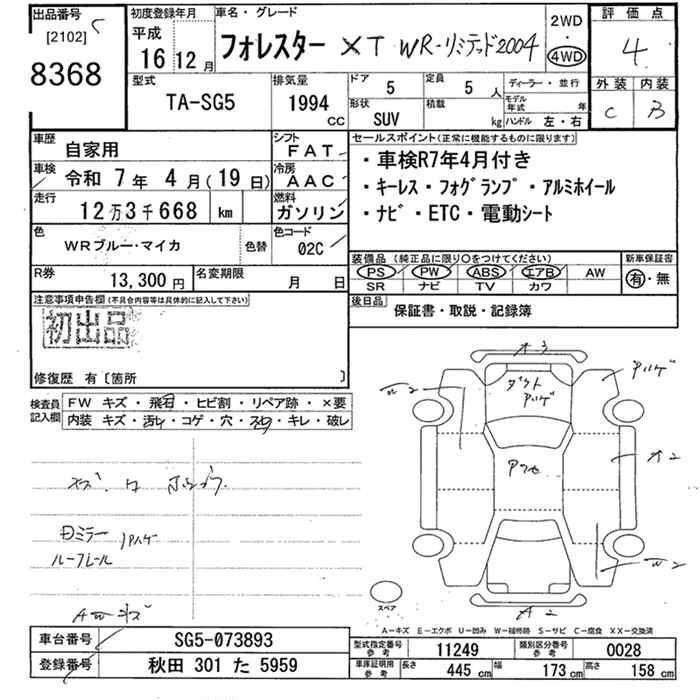 出品番号
[2102]
8368
初度登録年月
平成
16年12月
車名・グレード
フォレスター XT WR-リミテッド2004
2WD
・
4WD
評価点
4
外装 内装
C B
型式
TA-SG5
排気量
1994
cc
ドア
5
定員
5人
形状
SUV
積載
kg
ディーラー・並行
モデル年式 年
ハンドル 左・右
車歴
自家用
シフト
FAT
車検
令和 7年 4月(19日)
冷房
AAC
走行
12万3千668 km
燃料
ガソリン
色
WRブルー・マイカ
色替
色コード
02C
R券
13,300円
名変期限
月 日
セールスポイント(正常に機能するものに限ります)
・車検R7年4月付き
・キーレス・フォグランプ・アルミホイール
・ナビ・ETC・電動シート
装備品(純正品に限り〇をつけてください)
PS PW ABS エアB AW
SR ナビ TV カワ
新車保証書
有・無
後日品
保証書・取説・記録簿
注意事項申告欄(不具合内容等は具体的に記入して下さい)
初出品
修復歴 有〔箇所 〕
検査員記入欄
FW キズ・飛石・ヒビ割・リペア跡・×要
内装 キズ・汚れ・コゲ・穴・スレ・キレ・破レ
ミラー ハゲ
ルーフレール
AWキズ
ダクト
ハゲ
アワセ
A3
ハゲ
W2
A2
W2
A2
スペア
A−キズ E−エクボ U−凹み W−補修跡 S−サビ C−腐食 XX−交換済
車台番号
SG5-073893
登録番号
秋田 301 た 5959
型式指定番号
参考
11249
類別区分番号
参考
0028
車庫証明用
参考
長さ 445 cm
幅 173 cm
高さ 158 cm